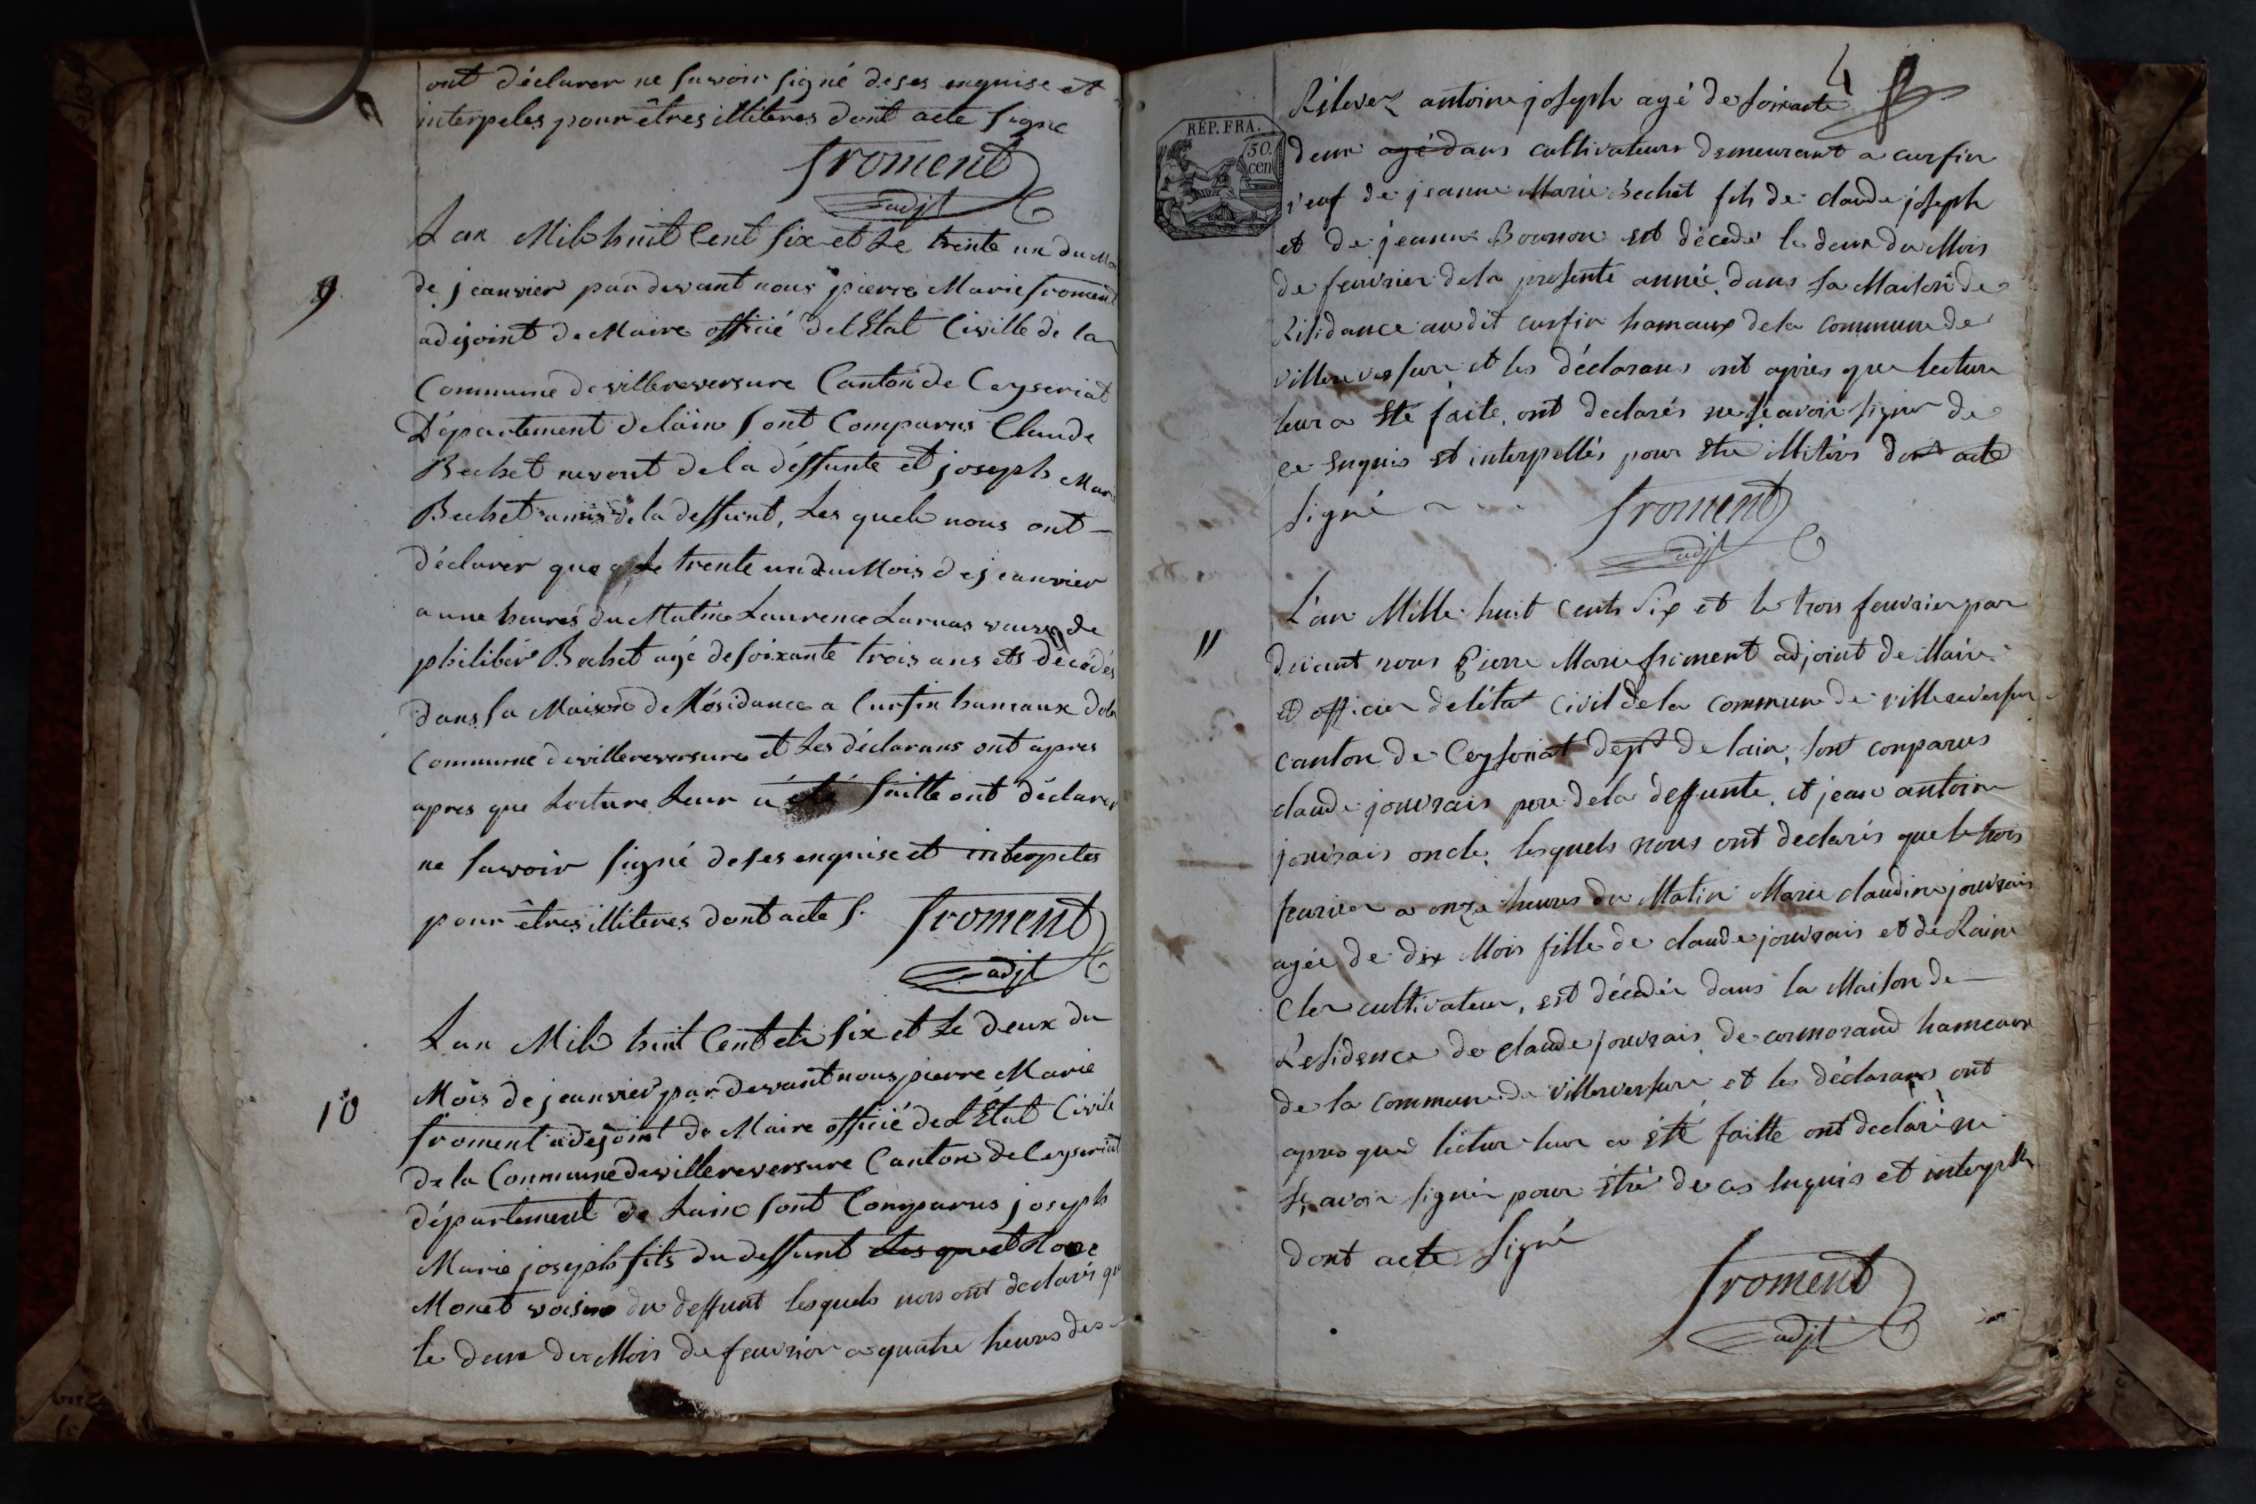 ont déclarer ne savoir signé deses enquise et
interpeles pour êtres illiteres dont acte signe
froment
adjt
9
Lan Mil huit Cent six et Le trente un du Mo
de jeanvier par devant nous pierre Marie froment
adejoint de Maire officié del'Etat Civille de la
Commune de villereversure Canton de Ceyseriat
Département delain sont Comparus Claude
Bechet nevont de la deffunte et joseph Mari
Bechet amis de la deffunt, Les quels nous ont
déclarer que Le trente un du Mois de jeanvier
a une heures du Matin Laurence Larnas veuve de
philibér Bechet agé de soixante trois ans ets décédés
dans sa Maison de Résidance a Curfin hameaux dela
Commune de villereversure et Les déclarans ont apres
apres que Lecture Leur a été faitte ont déclarer
ne savoir signé deses enquise et interpeles
pour êtres illiteres dont acte s. froment
adjt
10
Lan Mil huit Cent et six et Le deux du
Mois de jeanvier par devant nous pierre Marie
froment adejoint de Maire officié del'Etat Civile
de la Commune de villereversure Canton de Ceyseriat
département de Lain sont Comparus joseph
Marie joseph fils du deffunt Les quel
Monet voisin du deffunt lesquels nous ont declarés que
le deux du Mois de feuvrier a quatre heures des
4
RÉP. FRA.
50.
cen
Rélevez antoine joseph agé de soixante
deux agé dans cultivateur demeurant a curfin
veuf de jeanne Marie Bechet fils de claude joseph
et de jeanne Bournon est décedé le deux du Mois
de feuvrier dela presente année dans sa Maison de
Residance audit curfin hameaux dela commune de
villereversure et les déclarans ont après que lecture
leur a été faite, ont declarés ne sçavoir signer de
ce enquis et interpellés pour etre illitérés dont acte
signé
froment
adjt
11
L'an Mille huit cents six et le trois feuvrier par
devant nous Pierre Marie froment adjoint de Maire
et officier del'état civil dela commune de villereversure
canton de Ceyseriat dept de lain, sont comparus
claude jouvrais pere dela deffunte, et jean antoine
jouvrais oncle, lesquels nous ont declarés que le trois
feuvrier a onze heures du Matin Marie claudine jouvrais
agée de dix Mois fille de claude jouvrais et de Raine
Cler cultivateur, est décedée dans la Maison de
Residence de claude jouvrais de cormorand hameaux
de la commune de villereversure et les déclarans ont
apres que lecture leur a été faitte ont declaré ne
sçavoir signer pour etre de ces enquis et interpelle
dont acte signé
froment
adjt